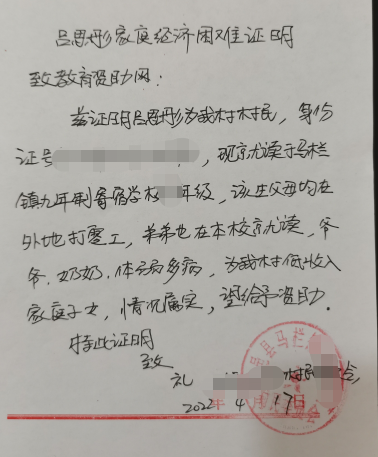 吕思彤家庭经济困难证明
致教育资助网：
兹证明吕思彤为我村村民，身份
证号，现就读于马栏
镇九年制寄宿学校年级，该生父母均在
外地打零工，弟弟也在本校就读，爷
爷、奶奶，体弱多病，为我村低收入
家庭子女，情况属实，望给予资助。
特此证明
致
礼
村民
2022年4月17日
县马栏